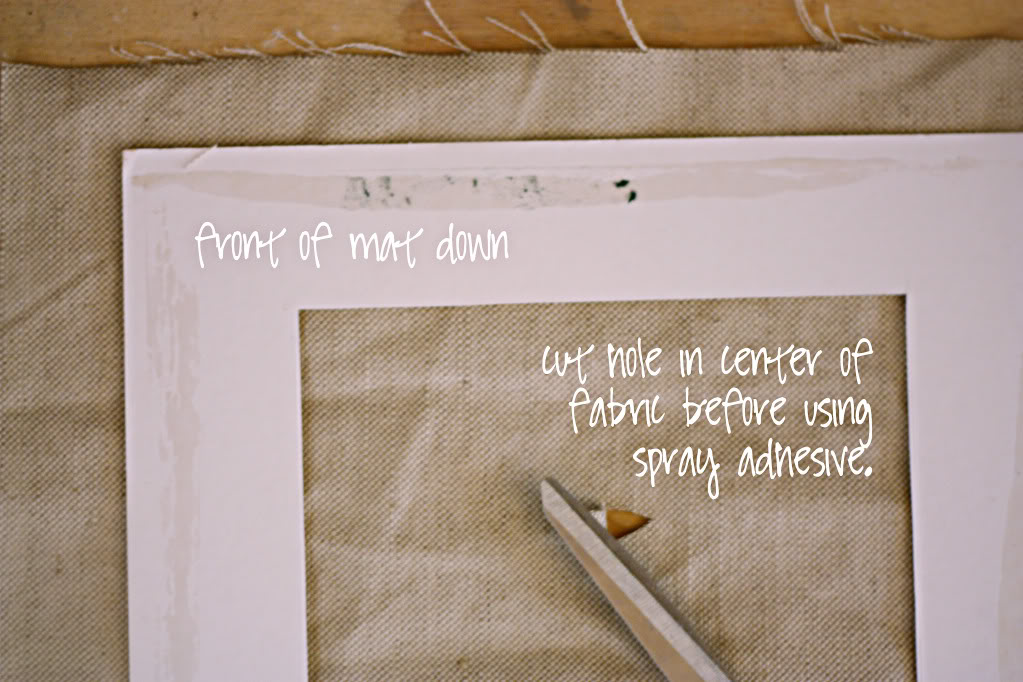 front of mat down
cut hole in center of
fabric before using
spray adhesive.